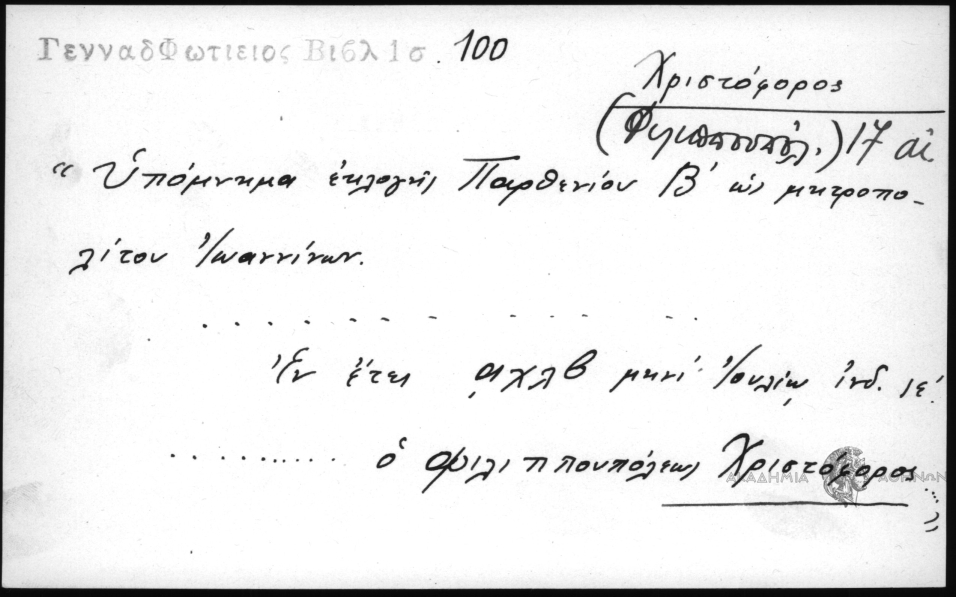 ΓενναδΦωτιειος Βιβλ 1σ. 100
Χριστόφορος
(Φιλιππουπόλ.) 17 αἰ
“ Ὑπόμνημα ἐκλογῆς Παρθενίου Β΄ ὡς μητροπο-
λίτου Ἰωαννίνων.
. . . . . . . . . . . .
Ἐν ἔτει ͵αχλβ μηνὶ Ἰουλίῳ ἰνδ. ιε΄.
. . . . . . . . . . ὁ Φιλιππουπόλεως Χριστόφορος ....”
ΑΚΑΔΗΜΙΑ ΑΘΗΝΩΝ